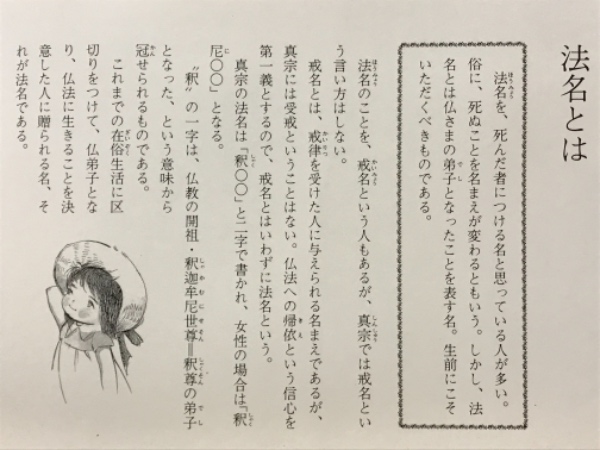 法名とは
法名を、死んだ者につける名と思っている人が多い。
俗に、死ぬことを名まえが変わるともいう。しかし、法
名とは仏さまの弟子となったことを表す名。生前にこそ
いただくべきものである。
法名のことを、戒名という人もあるが、真宗では戒名とい
う言い方はしない。
戒名とは、戒律を受けた人に与えられる名まえであるが、
真宗には受戒ということはない。仏法への帰依という信心を
第一義とするので、戒名とはいわずに法名という。
真宗の法名は「釈〇〇」と二字で書かれ、女性の場合は「釈
尼〇〇」となる。
〝釈〟の一字は、仏教の開祖・釈迦牟尼世尊＝釈尊の弟子
となった、という意味から
冠せられるものである。
これまでの在俗生活に区
切りをつけて、仏弟子とな
り、仏法に生きることを決
意した人に贈られる名、そ
れが法名である。